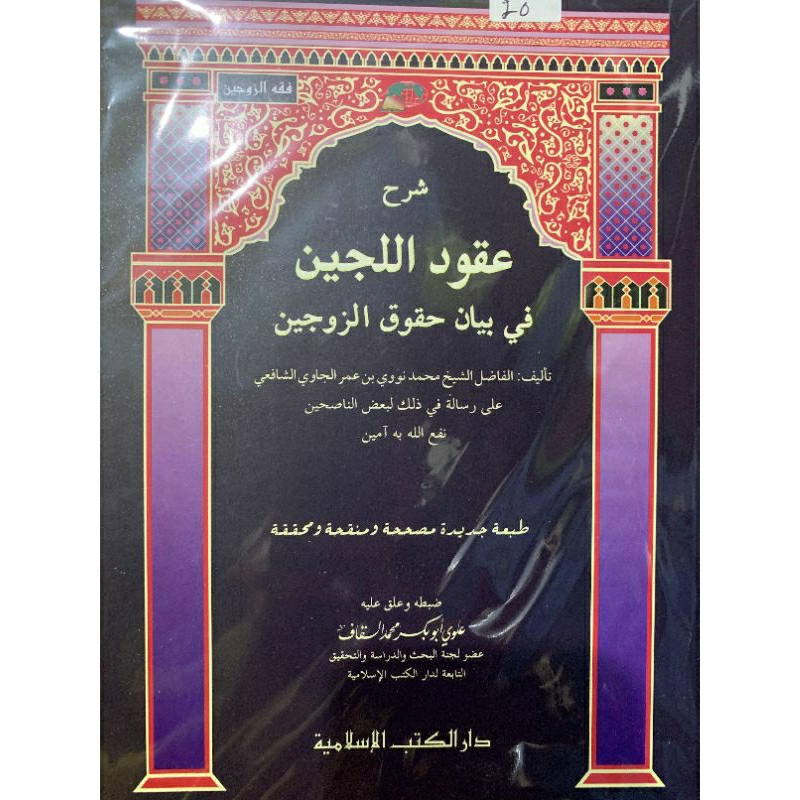 ٤٥
فقه الزوجين
شرح
عقود اللجين
في بيان حقوق الزوجين
تأليف: الفاضل الشيخ محمد نووي بن عمر الجاوي الشافعي
على رسالة في ذلك لبعض الناصحين
نفع الله به آمين
طبعة جديدة مصححة ومنقحة ومحققة
ضبطه وعلق عليه
علوي أبو بكر محمد السقاف
عضو لجنة البحث والدراسة والتحقيق
التابعة لدار الكتب الإسلامية
دار الكتب الإسلامية